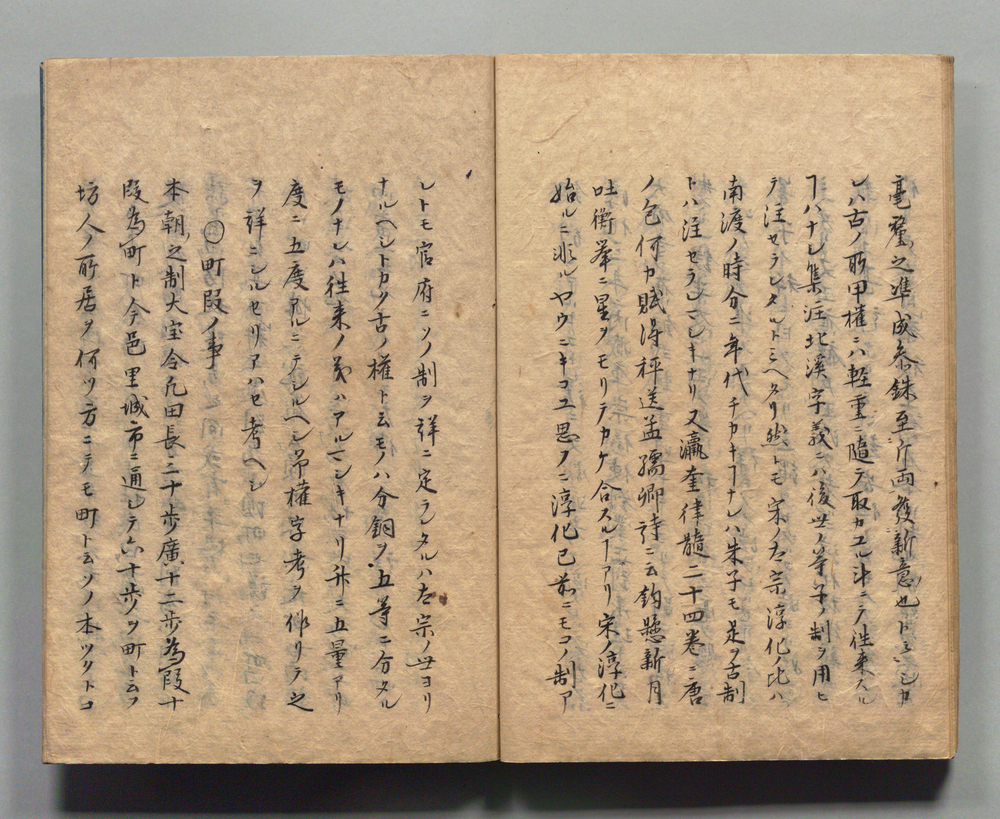 毫釐之準成参銖至斤両復新意也トミヘシカ
レハ古ノ所甲権ニハ軽重ニ随テ取カユル斗ニテ往来スル
ヿハナシ集注北溪字義ニハ後世ノ等子ノ制ヲ用ヒ
テ注セラレタルトミヘタリ然トモ宋ノ太宗淳化ノ比ハ
南渡ノ時分ニ年代チカキヿナレハ朱子モ是ヲ古制
トハ注セラレマシキナリ又瀛奎律髄二十四巻ニ唐
ノ包何カ賦得秤送孟孺卿詩ニ云鈎懸新月
吐衡挙ニ星ヲモリテカケ合スルヿアリ宋ノ淳化ニ
始ルニ非ルヤウニキコユ思フニ淳化已前ニモコノ制ア
レトモ官府ニソノ制ヲ詳ニ定ラレタルハ太宗ノ世ヨリ
ナルヘシトカク古ノ権ト云モノハ分銅ヲ五等ニ分タル
モノナレハ往来ノ義ハアルマシキナリ升ニ五量アリ
度ニ五度アルニテシルヘシ予権字考ヲ作リテ之
ヲ詳ニシルセリアハセ考ヘシ
○町段ノ事
本朝之制大宝令凡田長三十歩廣十二歩為段十
段為町ト今邑里城市ニ通シテ六十歩ヲ町ト云フ
坊人ノ所居ヲ何ツ方ニテモ町ト云フノ本ツクトコ